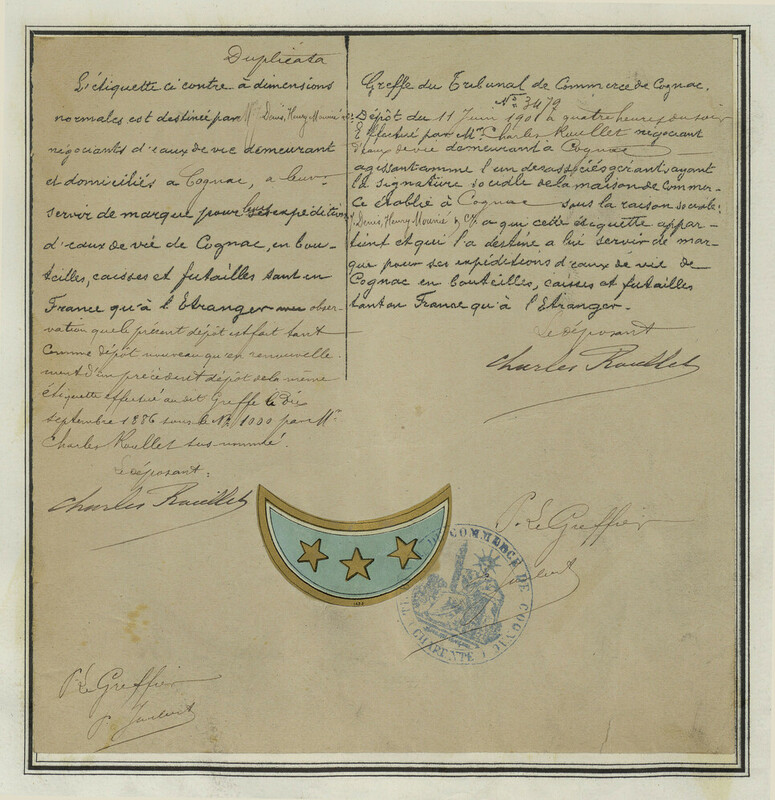 Duplicata
L'étiquette ci contre à dimensions
normales est destinée par MM. Denis, Henry Mounié & Cie
négociants d'eaux de vie demeurant
et domiciliés à Cognac, à leur
servir de marque pour leurs expéditions
d'eaux de vie de Cognac, en bou-
teilles, caisses et futailles tant en
France qu'à l'Etranger obser-
vation que le présent dépôt est fait tant
comme dépôt nouveau qu'en renouvelle-
ment d'un précédent dépôt de la même
étiquette effectué au dit Greffe le Dix
septembre 1886 sous le No 1000 par Mr
Charles Roullet sus-nommé.
Le déposant:
Charles Roullet
P. Le Greffier
Greffe du Tribunal de Commerce de Cognac.
No 3479
Dépôt du 11 Juin 1901 à quatre heures du soir
Effectué par Mr Charles Roullet négociant
d'eaux de vie demeurant à Cognac
agissant comme l'un des associés gérants ayant
la signature sociale de la maison de commer-
ce établie à Cognac sous la raison sociale:
J. Denis, Henry Mounié & Cie à qui cette étiquette appar-
tient et qui l'a destine à lui servir de mar-
que pour ses expéditions d'eaux de vie de
Cognac en bouteilles, caisses et futailles
tant en France qu'à l'Etranger.
Le déposant
Charles Roullet
P. Le Greffier
DE COMMERCE DE COGNAC
(CHARENTE)